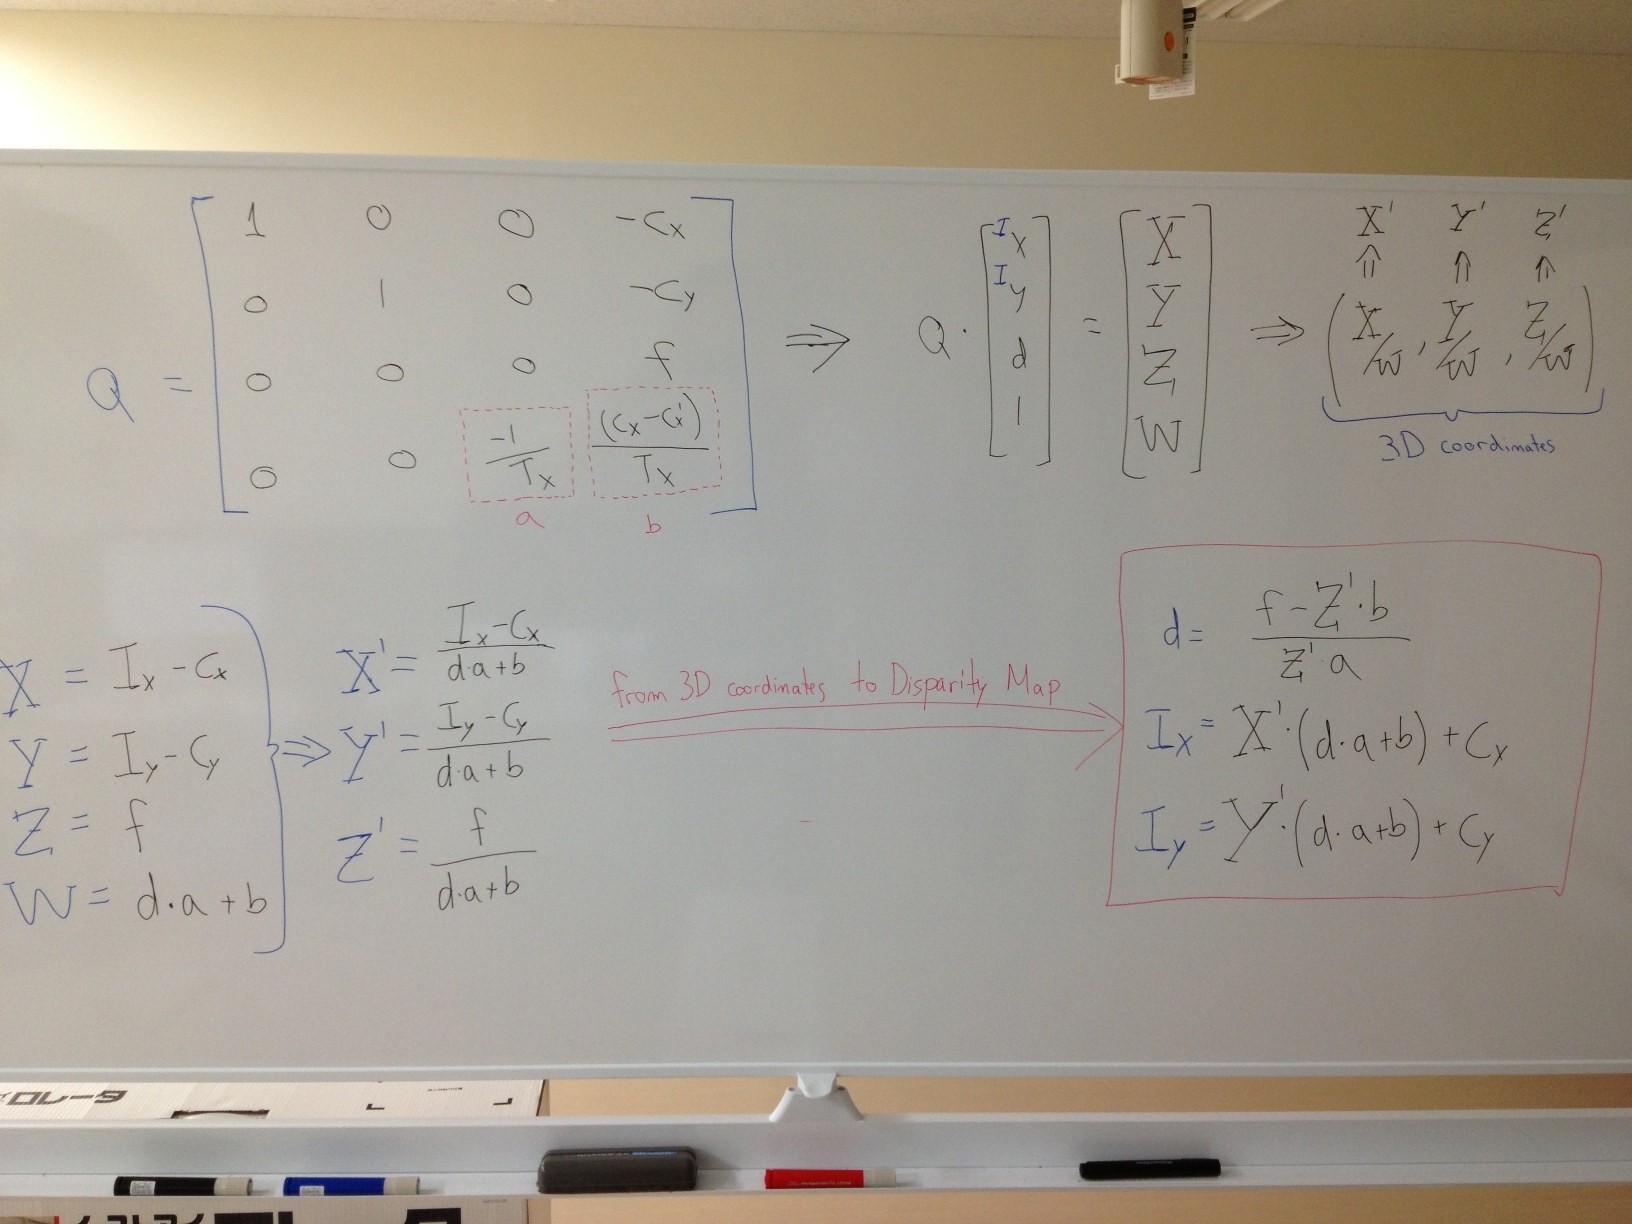 Q = [ 1 0 0 -Cx ; 0 1 0 -Cy ; 0 0 0 f ; 0 0 -1/Tx (Cx-Cx')/Tx ]
a b
⇒ Q · [ Ix ; Iy ; d ; 1 ] = [ X ; Y ; Z ; W ] ⇒ ( X/W , Y/W , Z/W )
X' Y' Z'
⇑ ⇑ ⇑
3D coordinates
X = Ix - Cx
Y = Iy - Cy
Z = f
W = d·a + b
⇒
X' = (Ix - Cx)/(d·a + b)
Y' = (Iy - Cy)/(d·a + b)
Z' = f/(d·a + b)
from 3D coordinates to Disparity Map
d = (f - Z'·b)/(Z'·a)
Ix = X'·(d·a+b) + Cx
Iy = Y'·(d·a+b) + Cy
ロレータ